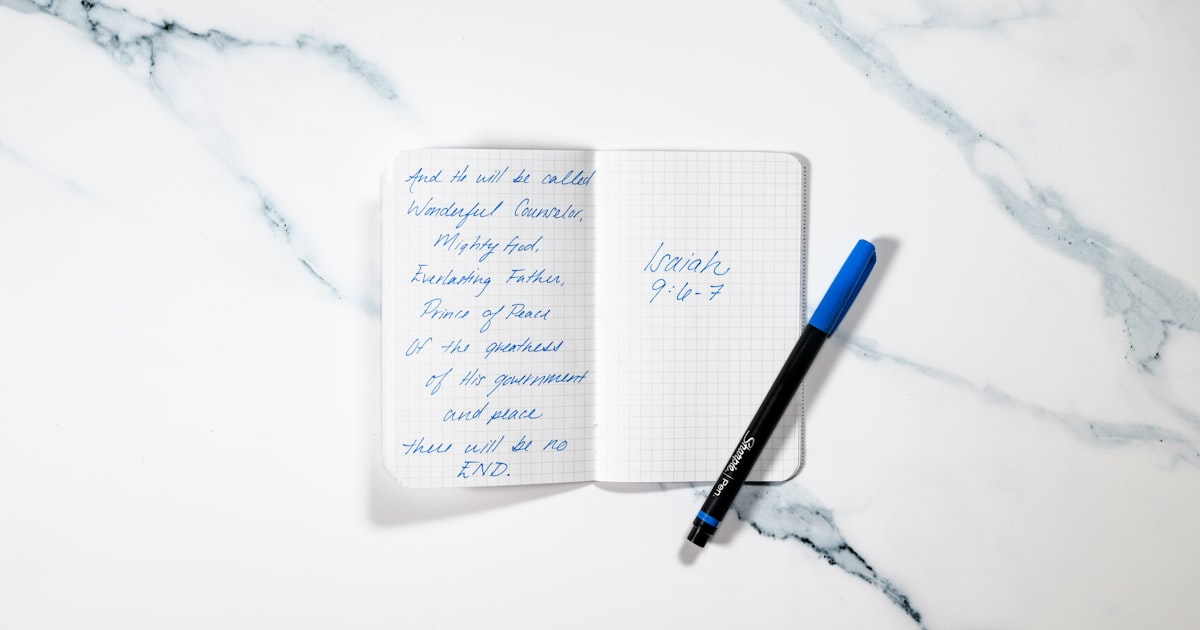 And He will be called
Wonderful Counselor,
Mighty God,
Everlasting Father,
Prince of Peace
Of the greatness
of His government
and peace
there will be no
END.
Isaiah
9:6-7
Sharpie | Pen.